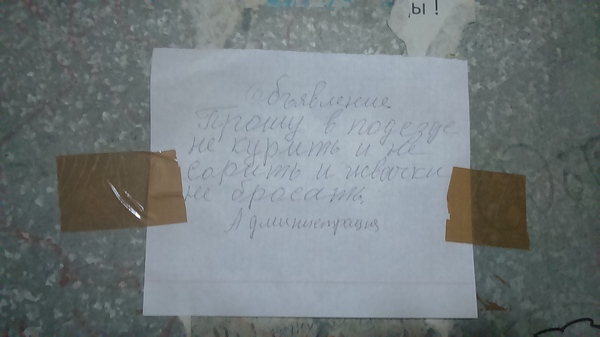 ы!
Объявление
Прошу в подезде
не курить и не
сорить и жвачки
не бросать.
Администрация